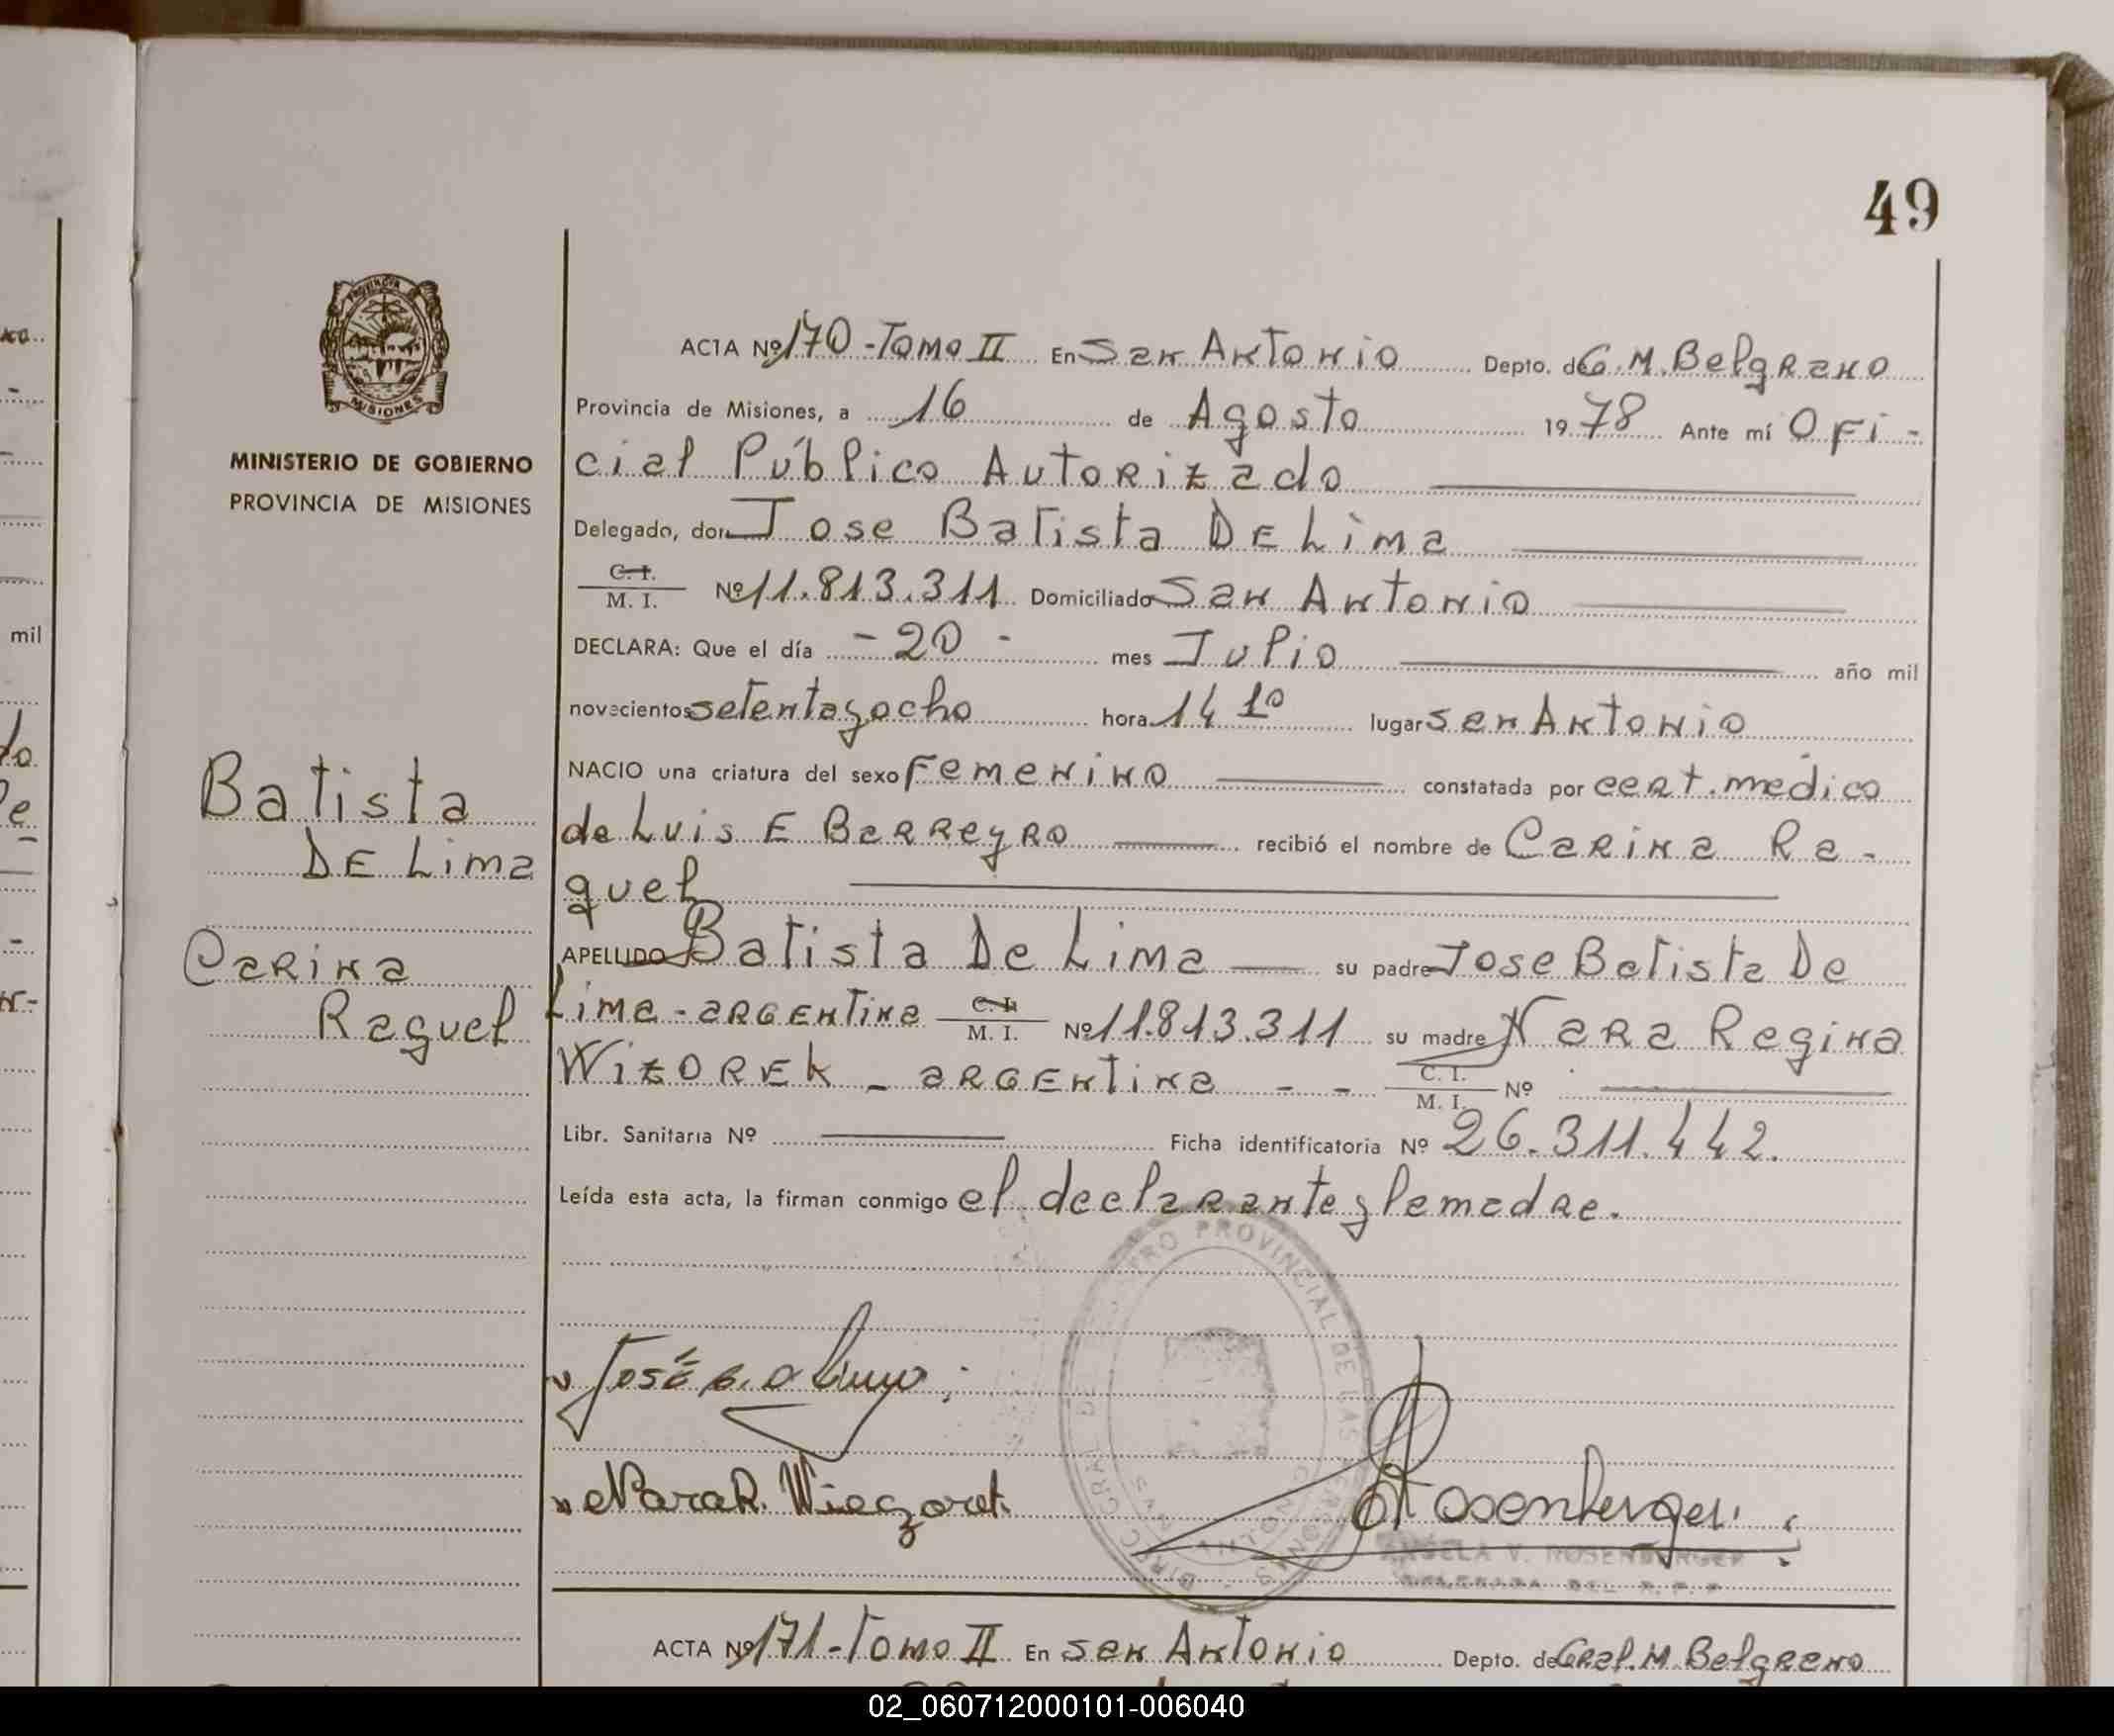 49
PROVINCIA
MISIONES
MINISTERIO DE GOBIERNO
PROVINCIA DE MISIONES
Batista
DE Lima
Carina
Raquel
ACTA Nº 170 - Tomo II En San Antonio Depto. de G. M. Belgrano
Provincia de Misiones, a 16 de Agosto 1978 Ante mí Ofi-
cial Público Autorizado
Delegado, don Jose Batista DE Lima
C. I.
M. I. Nº 11.813.311 Domiciliado San Antonio
DECLARA: Que el día - 20 - mes Julio año mil
novecientos setentayocho hora 14 10 lugar San Antonio
NACIO una criatura del sexo Femenino constatada por cert. medico
de Luis E Barreyro recibió el nombre de Carina Ra-
quel
APELLIDO Batista De Lima su padre Jose Batista De
Lima - argentina C. I.
M. I. Nº 11.813.311 su madre Nara Regina
Wizorek - argentina - - C. I.
M. I. Nº
Libr. Sanitaria Nº Ficha identificatoria Nº 26.311.442.
Leída esta acta, la firman conmigo el declarante y la madre.
José B. D Lima
Nara R. Wiezorek
Rosenberger
ANGELA V. ROSENBERGER
PROVINCIAL DE LAS PERSONAS
ACTA Nº 171 - Tomo II En San Antonio Depto. de Gral. M. Belgrano
mil
02_060712000101-006040